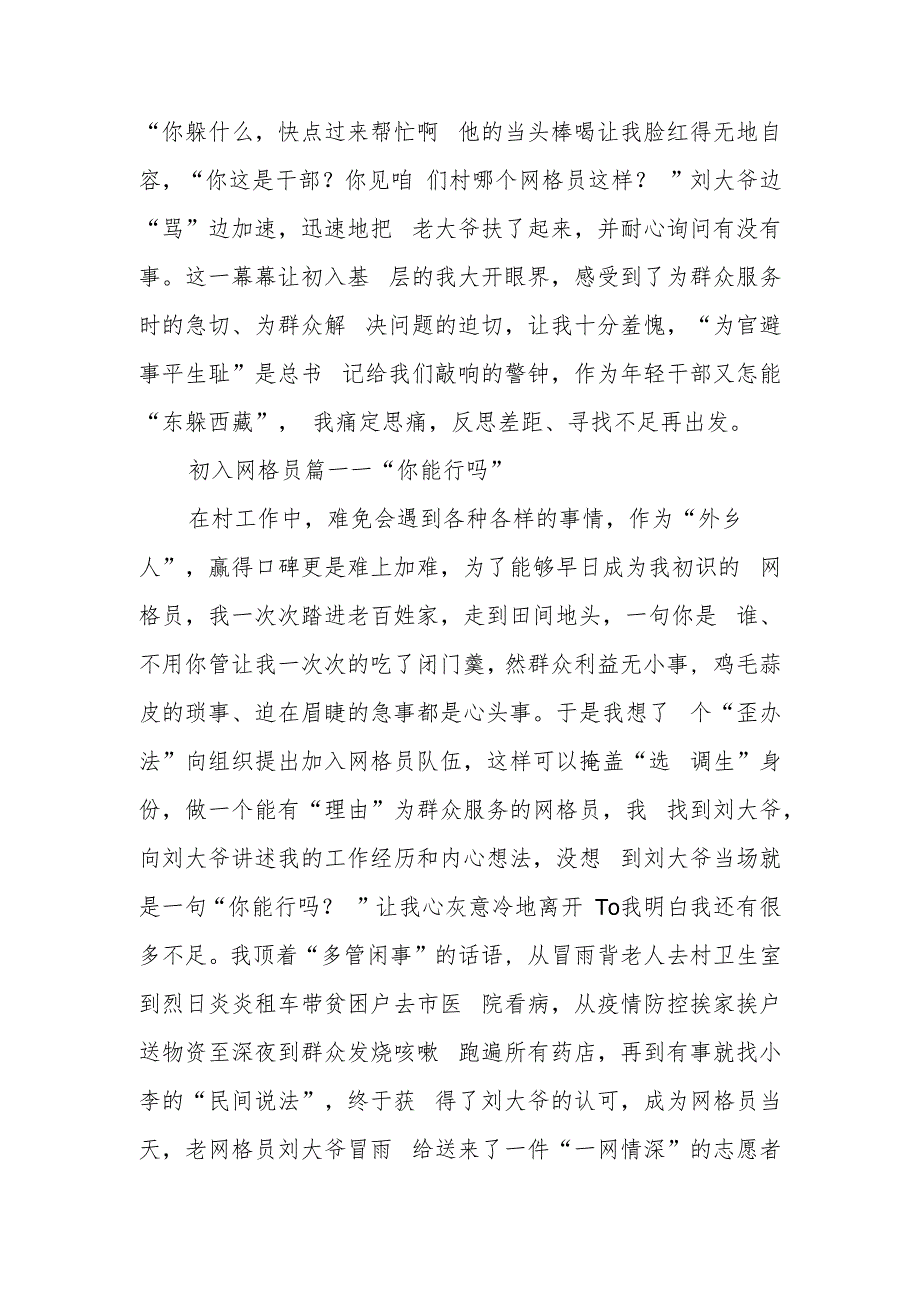 “你躲什么，快点过来帮忙啊 他的当头棒喝让我脸红得无地自
容，“你这是干部？你见咱 们村哪个网格员这样？ ”刘大爷边
“骂”边加速，迅速地把 老大爷扶了起来，并耐心询问有没有
事。这一幕幕让初入基 层的我大开眼界，感受到了为群众服务
时的急切、为群众解 决问题的迫切，让我十分羞愧，“为官避
事平生耻”是总书 记给我们敲响的警钟，作为年轻干部又怎能
“东躲西藏”， 我痛定思痛，反思差距、寻找不足再出发。
初入网格员篇一一“你能行吗”
在村工作中，难免会遇到各种各样的事情，作为“外乡
人”，赢得口碑更是难上加难，为了能够早日成为我初识的 网
格员，我一次次踏进老百姓家，走到田间地头，一句你是 谁、
不用你管让我一次次的吃了闭门羹，然群众利益无小事，鸡毛蒜
皮的琐事、迫在眉睫的急事都是心头事。于是我想了 个“歪办
法”向组织提出加入网格员队伍，这样可以掩盖“选 调生”身
份，做一个能有“理由”为群众服务的网格员，我 找到刘大爷，
向刘大爷讲述我的工作经历和内心想法，没想 到刘大爷当场就
是一句“你能行吗？ ”让我心灰意冷地离开 To我明白我还有很
多不足。我顶着“多管闲事”的话语，从冒雨背老人去村卫生室
到烈日炎炎租车带贫困户去市医 院看病，从疫情防控挨家挨户
送物资至深夜到群众发烧咳嗽 跑遍所有药店，再到有事就找小
李的“民间说法”，终于获 得了刘大爷的认可，成为网格员当
天，老网格员刘大爷冒雨 给送来了一件“一网情深”的志愿者